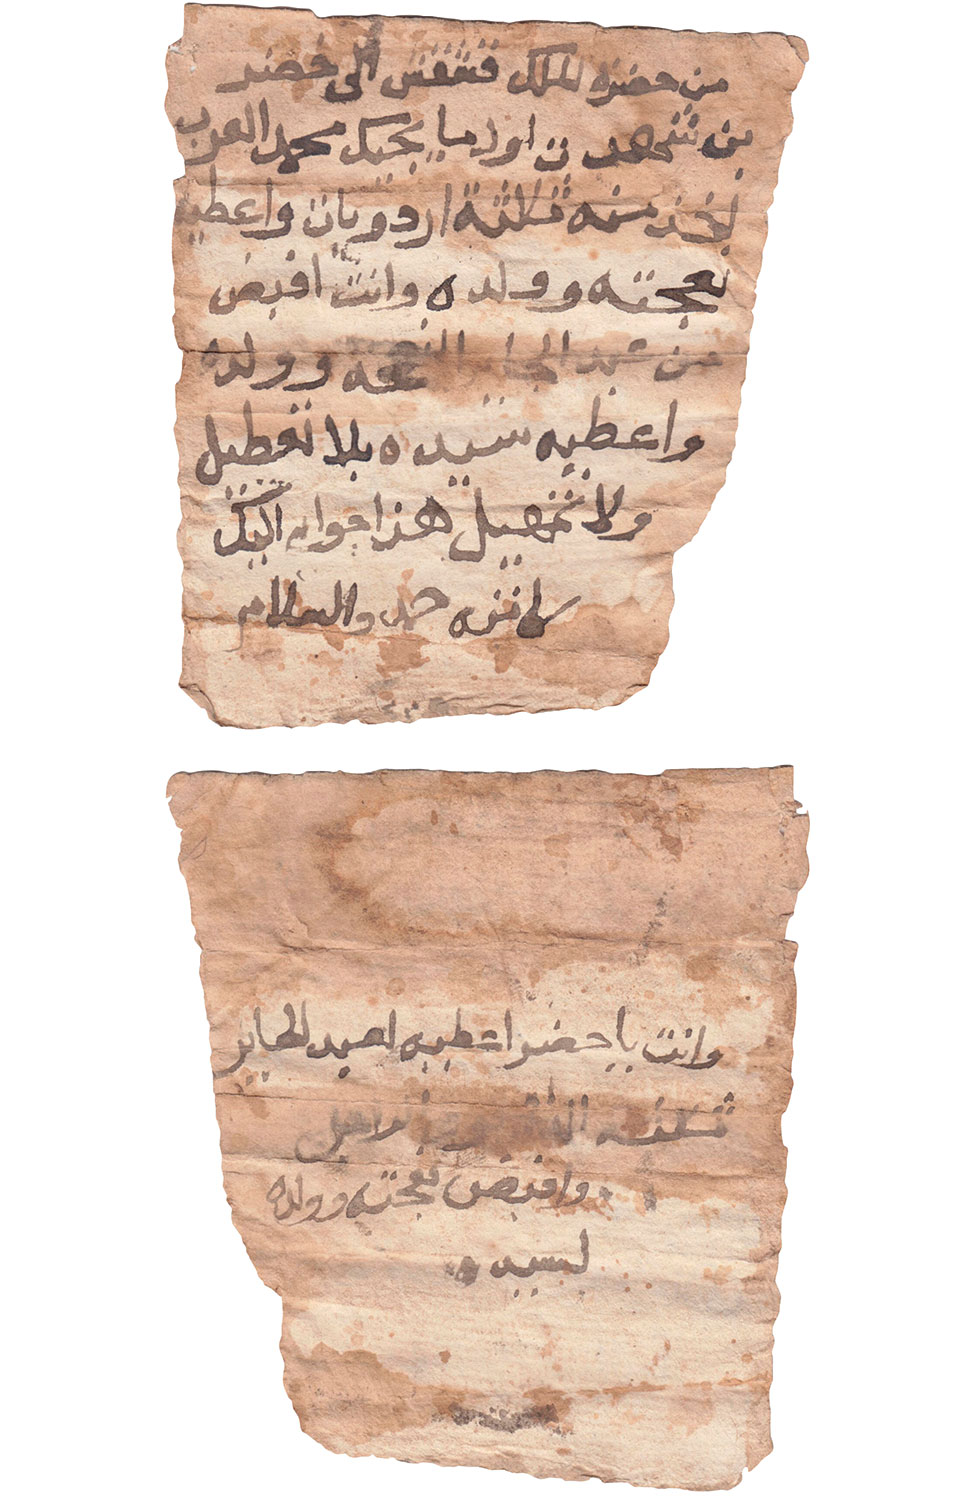 من حضرة الملك قشقش الى خضر
بن شهد ن اول ما يجيك محمد العرب
تخذ منه ثلاثة اردويات واعطيه
نعجته وولده وانت اقبض
من عبد الجابر النعجه وولده
واعطيه سيده بلا تعطيل
ولا تمهيل هذا جوابي اليك
كاتبه حمد والسلام
وانت يا خضر اعطيه لعبد الجابر
ثلاثة
واقبض نعجته وولده
لسيده